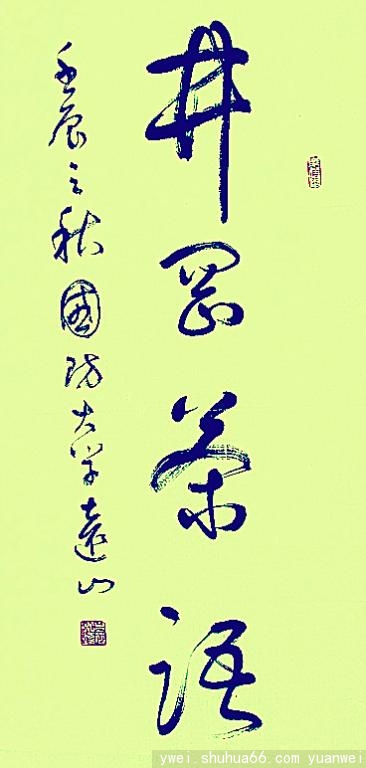 井岡茶語
壬辰之秋國防大学遠山
ywei.shuhua66.com yuanwei